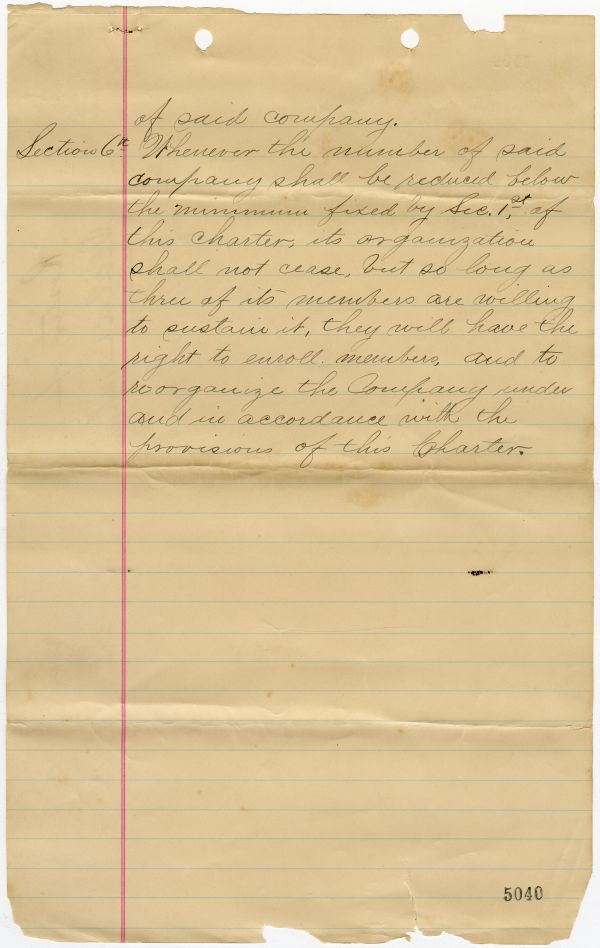 of said company.
Section 6th. Whenever the number of said
company shall be reduced below
the minimum fixed by Sec. 1st, of
this charter, its organization
shall not cease, but so long as
three of its members are willing
to sustain it, they will have the
right to enroll members, and to
reorganize the Company under
and in accordance with the
provisions of this Charter.
5040